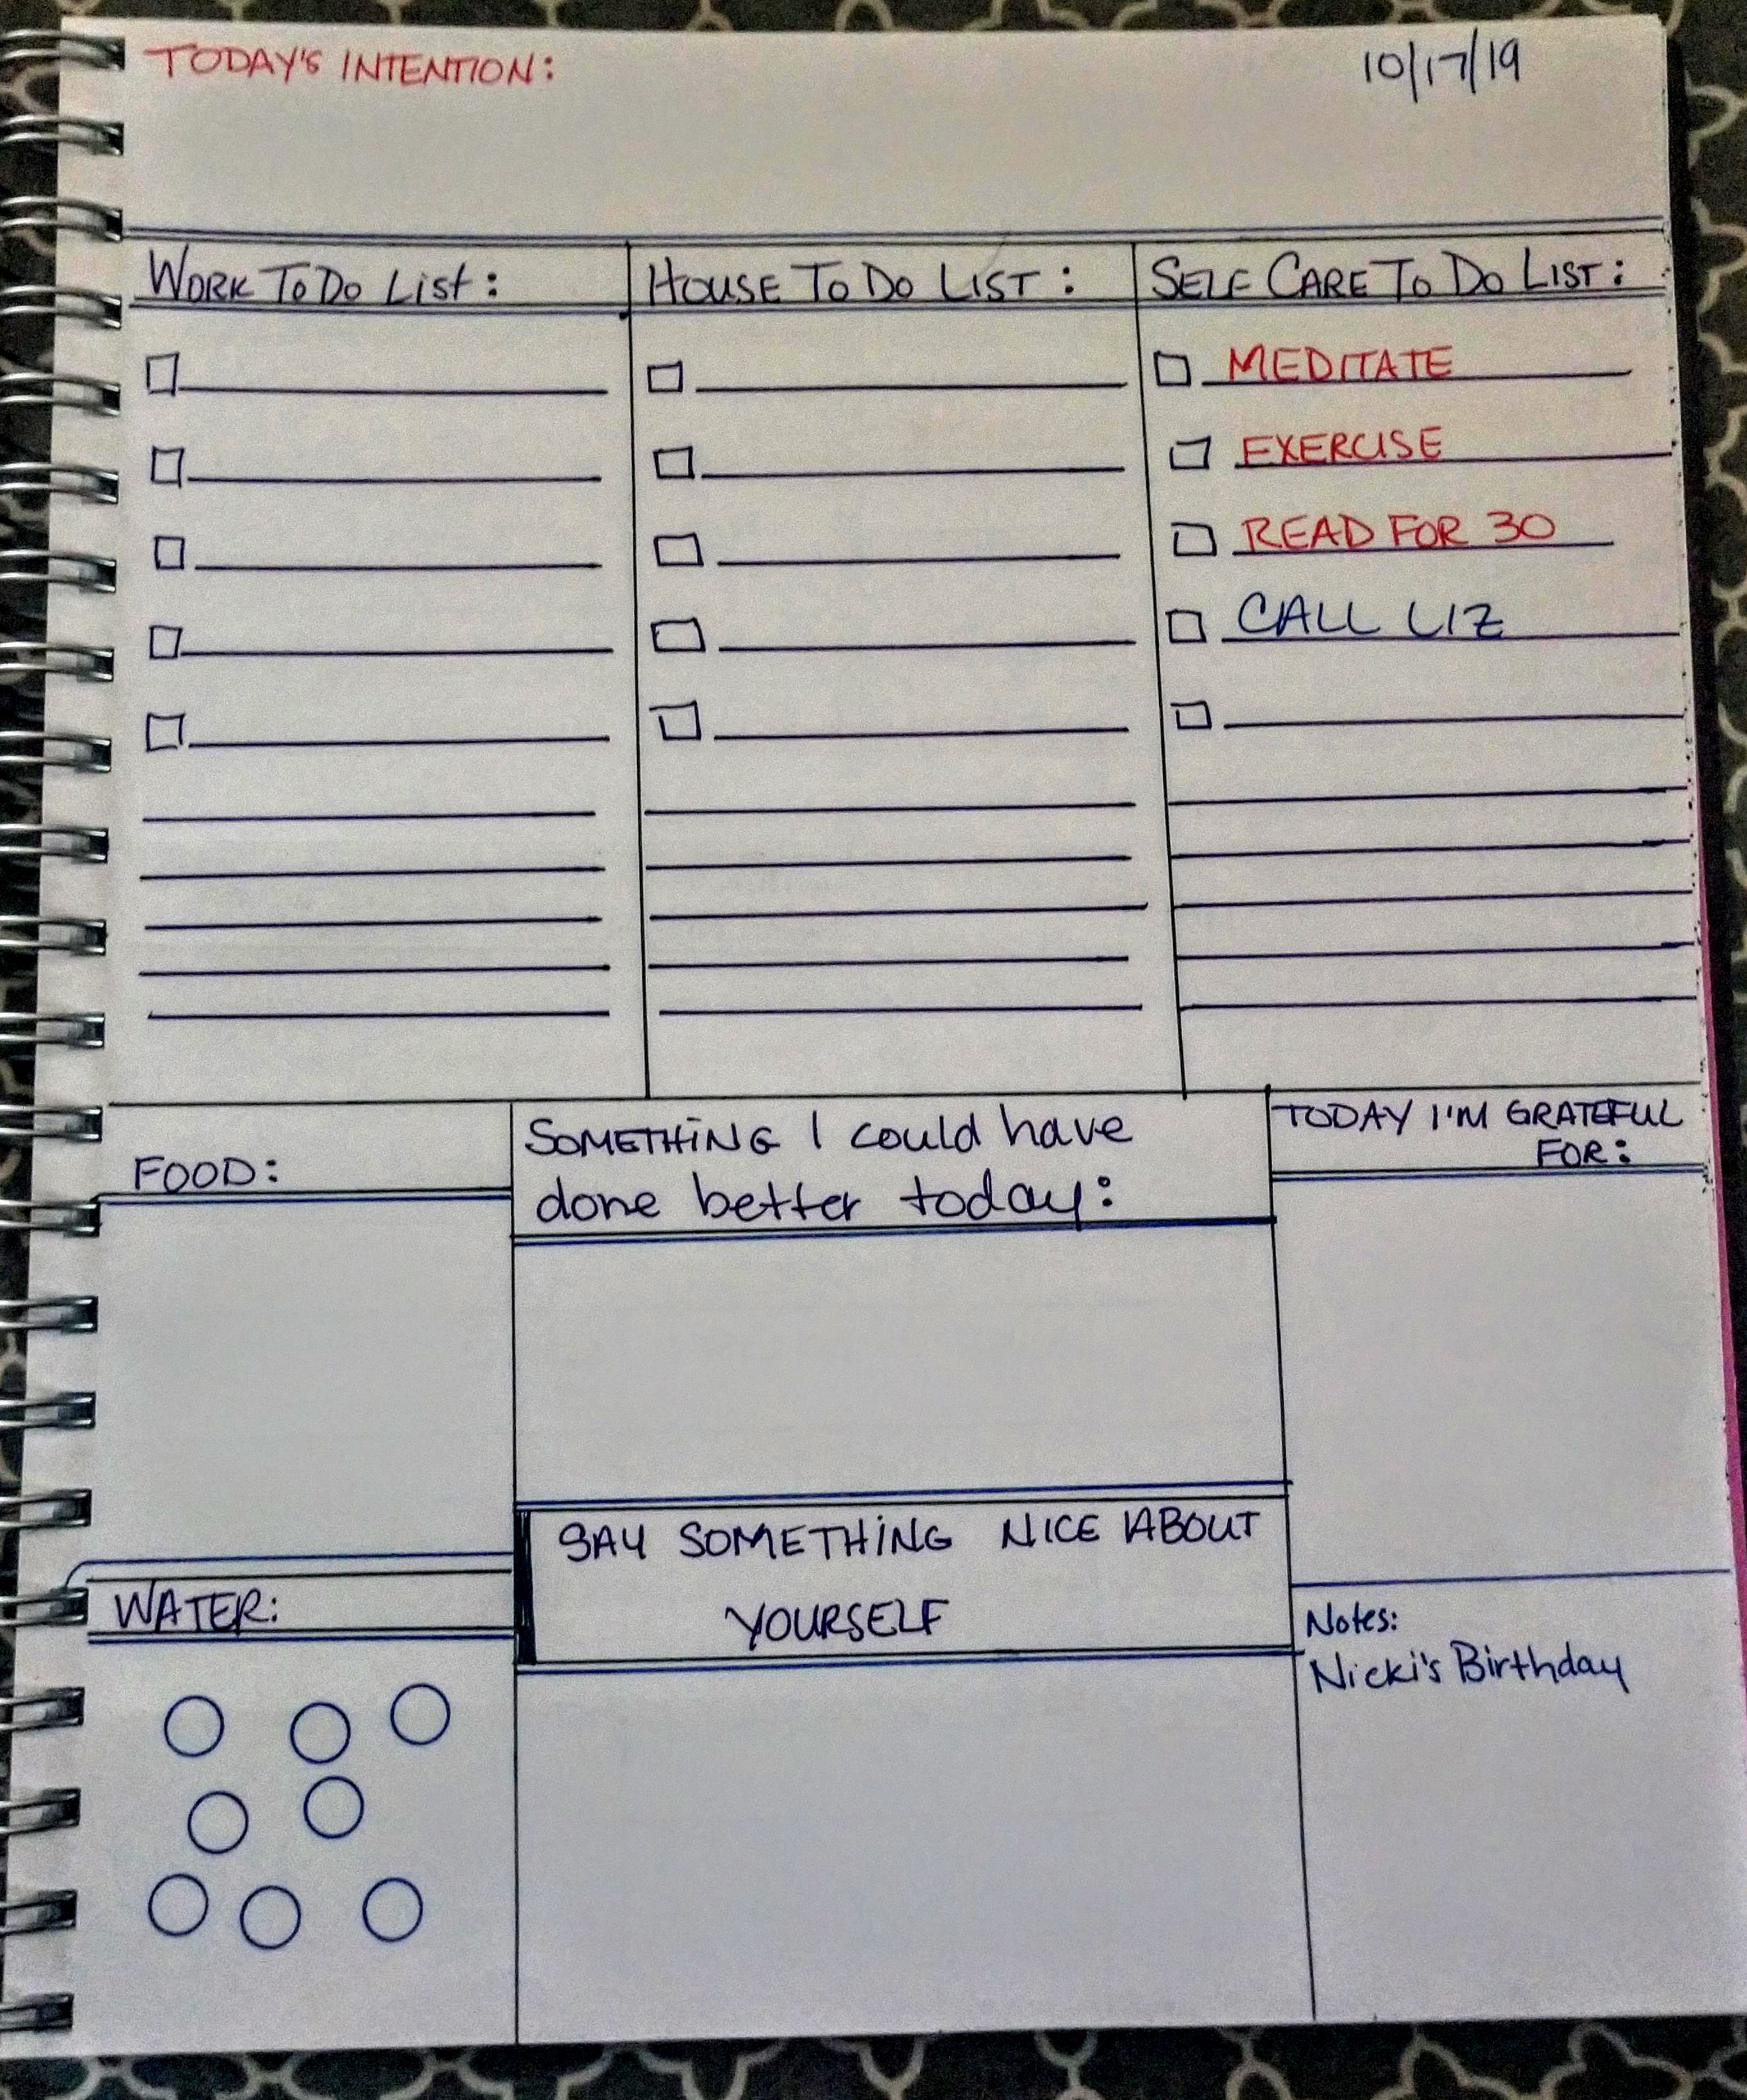 TODAY'S INTENTION:
10/17/19
WORK TO DO LiSt:
HOUSE TO DO LIST:
SELF CARE TO DO LIST:
MEDITATE
EXERCISE
READ FOR 30
CALL LIZ
FOOD:
SOMETHiNG I could have
done better today:
TODAY I'M GRATEFUL
FOR:
WATER:
SAY SOMETHiNG NICE ABOUT
YOURSELF
Notes:
Nicki's Birthday